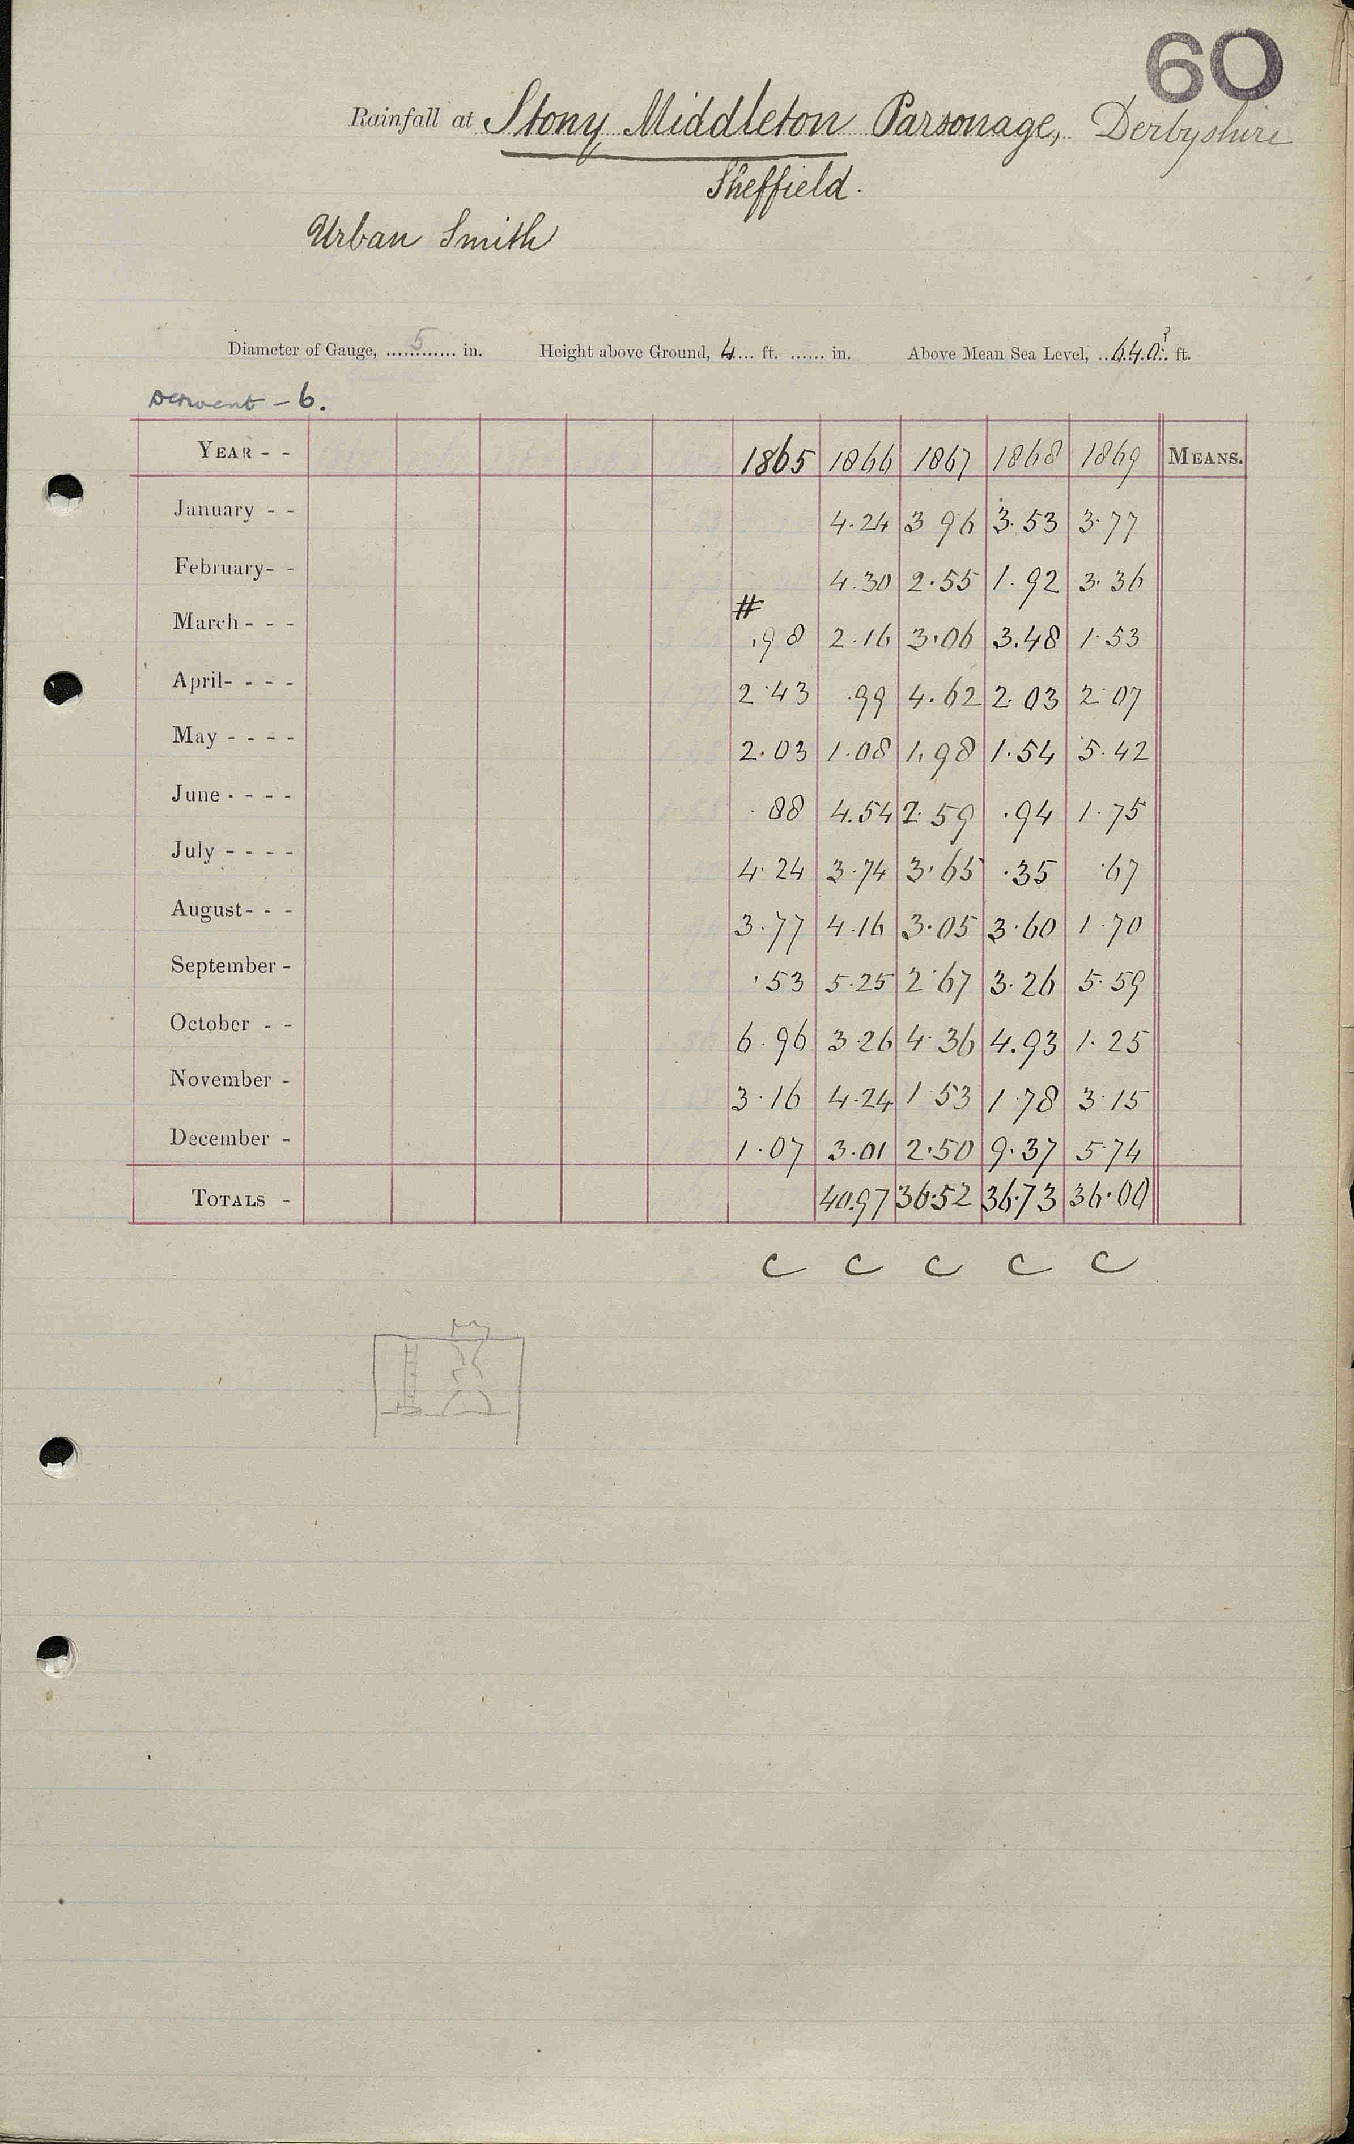 60
Rainfall at Stony Middleton Parsonage, Derbyshire
Sheffield.
Urban Smith
Diameter of Gauge, 5 in. Height above Ground, 4 ft. in. Above Mean Sea Level, 640? ft.
Derwent - 6.
YEAR - - 1865 1866 1867 1868 1869 MEANS.
January - - 4.24 3 96 3.53 3.77
February- - 4.30 2.55 1.92 3.36
#
March - - - .98 2.16 3.06 3.48 1.53
April- - - - 2.43 .99 4.62 2.03 2.07
May - - - - 2.03 1.08 1.98 1.54 5.42
June - - - - .88 4.54 2.59 .94 1.75
July - - - - 4.24 3.74 3.65 .35 .67
August- - - 3.77 4.16 3.05 3.60 1.70
September - .53 5.25 2.67 3.26 5.59
October - - 6.96 3.26 4.36 4.93 1.25
November - 3.16 4.24 1.53 1.78 3.15
December - 1.07 3.01 2.50 9.37 5.74
TOTALS - 40.97 36.52 36.73 36.00
C C C C C